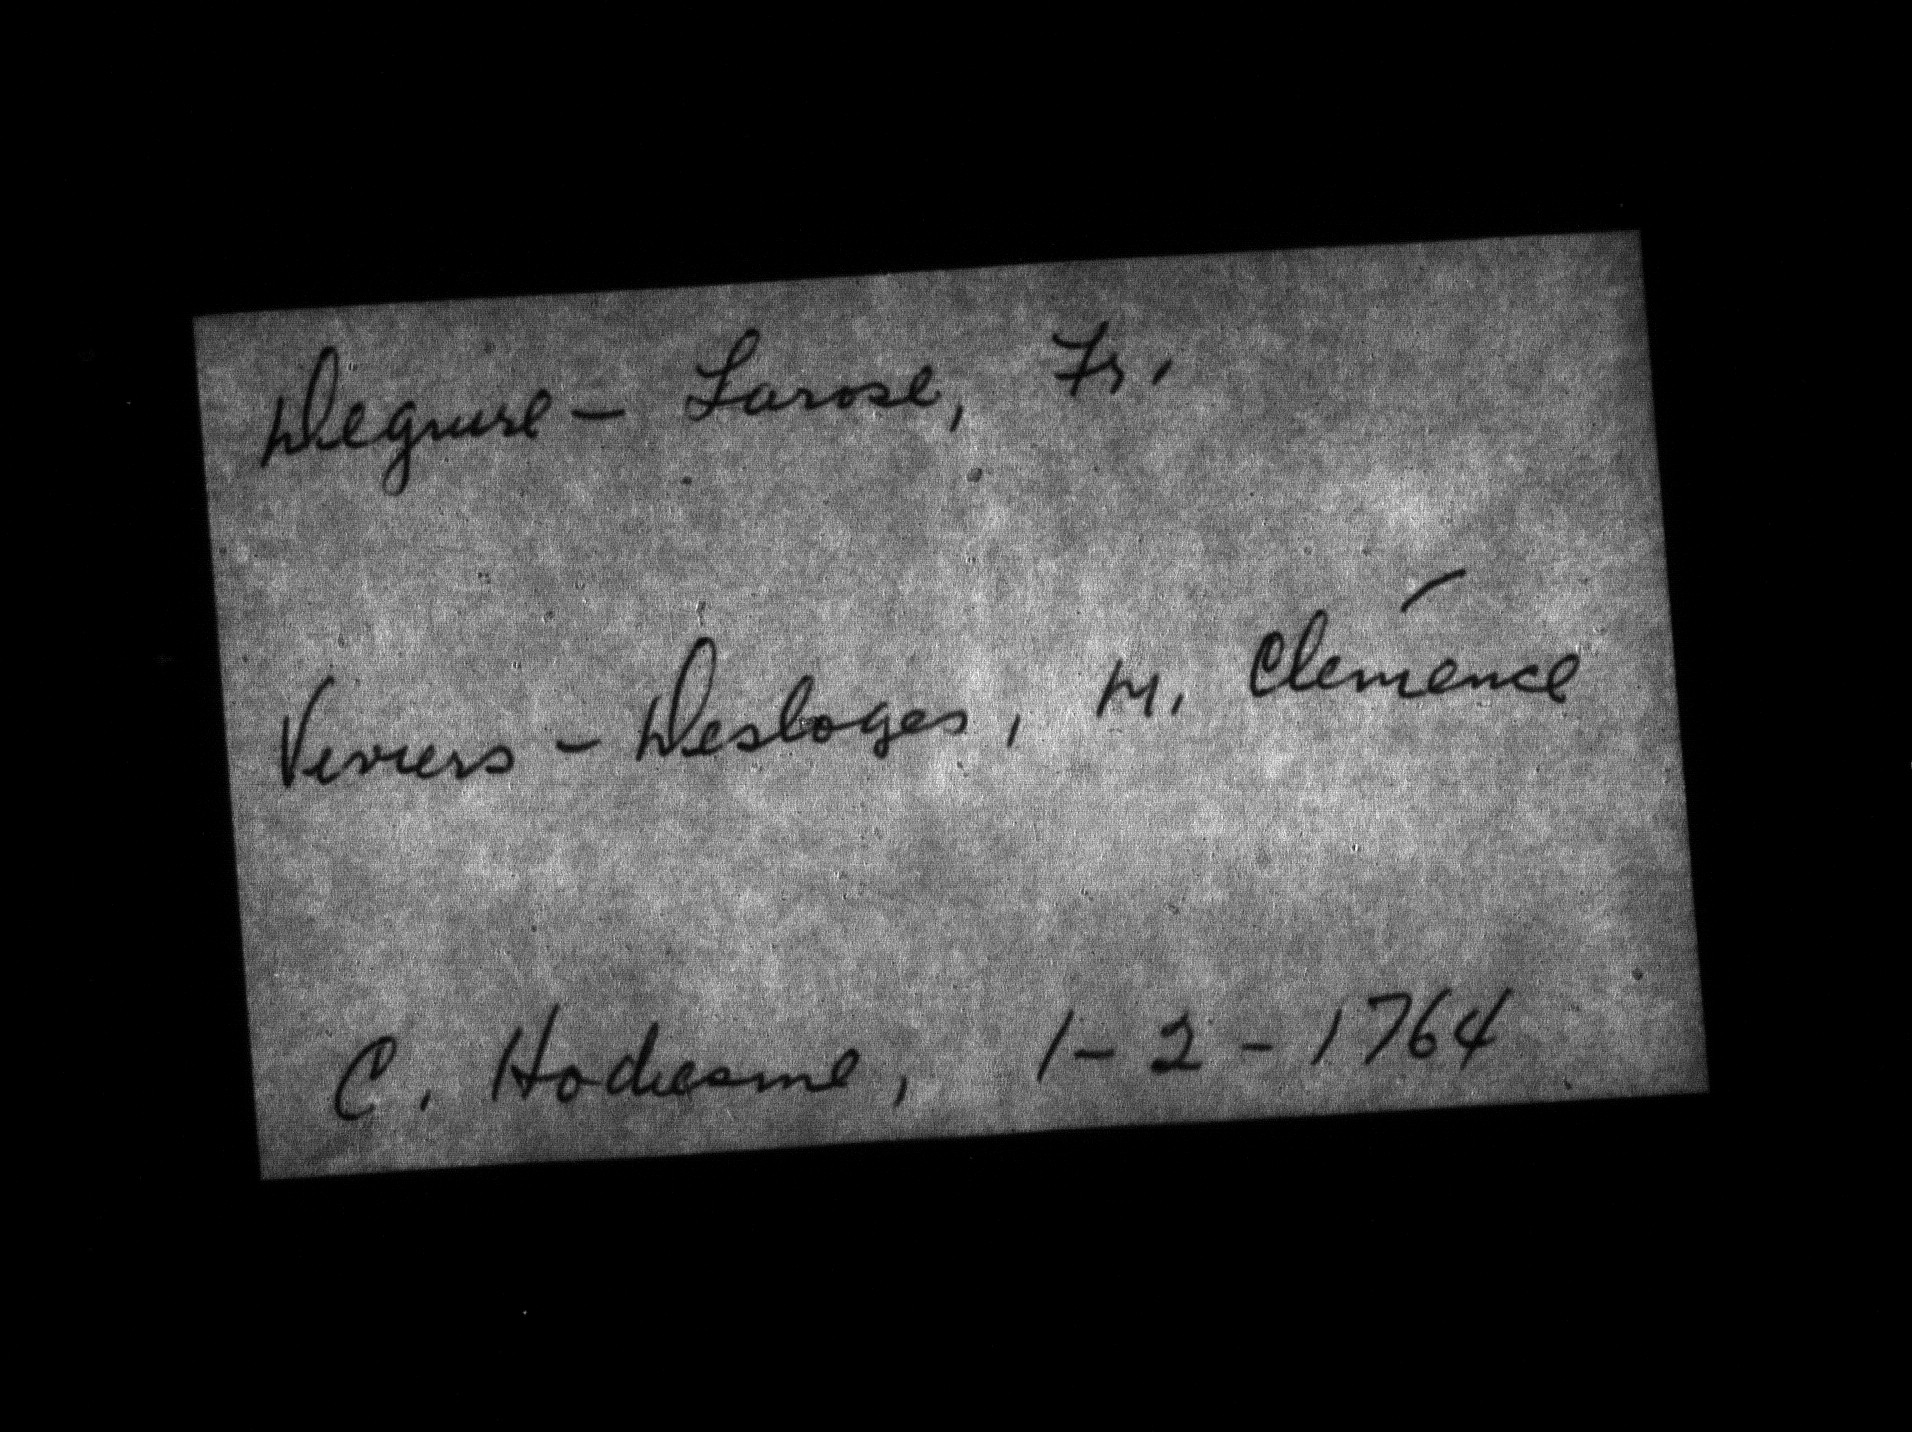 Deguire - Larose, Fr.
Veviers - Desloges, M. Clémence
C. Hodiesme, 1-2-1764